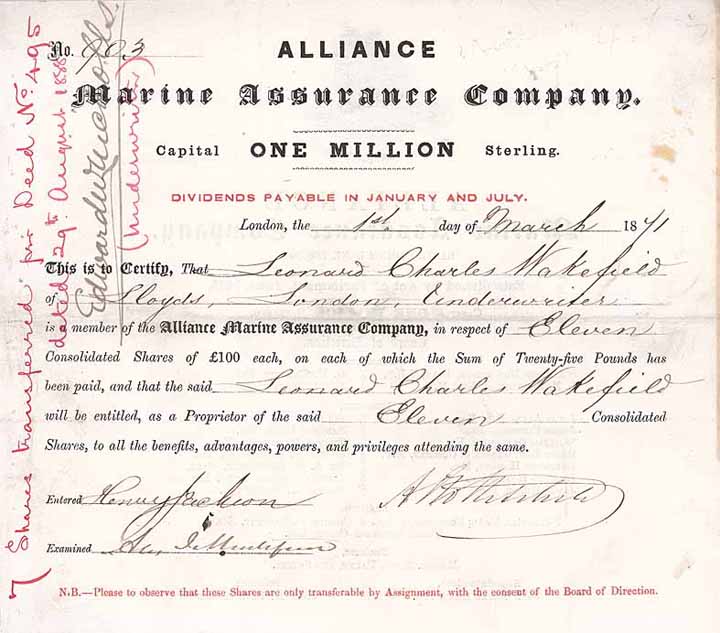 No. 903
ALLIANCE
Marine Assurance Company.
Capital ONE MILLION Sterling.
DIVIDENDS PAYABLE IN JANUARY AND JULY.
London, the 1st. day of March 1871
This is to Certify, That Leonard Charles Wakefield
of Lloyds, London, Underwriter
is a member of the Alliance Marine Assurance Company, in respect of Eleven
Consolidated Shares of £100 each, on each of which the Sum of Twenty-five Pounds has
been paid, and that the said Leonard Charles Wakefield
will be entitled, as a Proprietor of the said Eleven Consolidated
Shares, to all the benefits, advantages, powers, and privileges attending the same.
Entered Henry Jackson
Examined
N.B.—Please to observe that these Shares are only transferable by Assignment, with the consent of the Board of Direction.
7 Shares transferred per Deed No. 495
dated 29th August 1888
Edward Nicholls
(Underwriter)